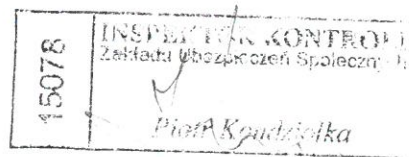 15078
INSPEKTOR KONTROLI
Zakładu Ubezpieczeń Społecznych
Piotr Kondziołka